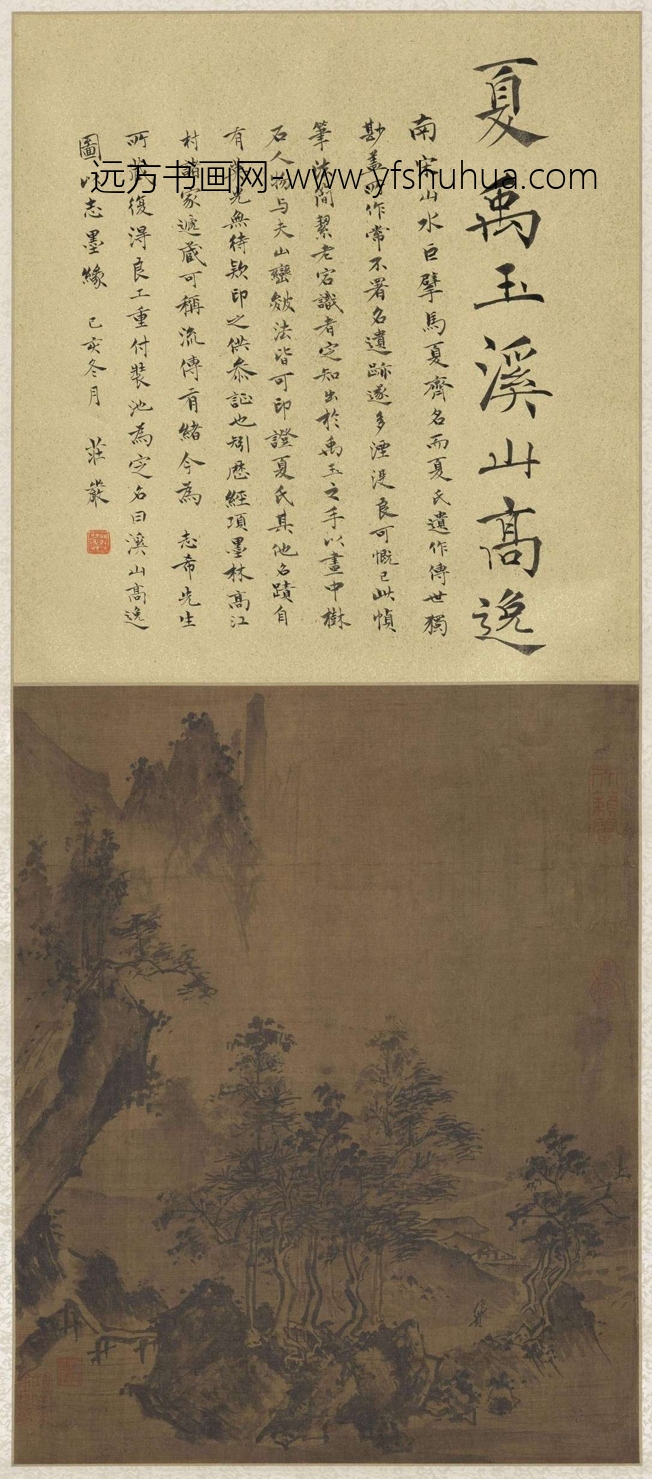 夏禹玉溪山高逸
南宋山水巨擘馬夏齊名而夏氏遺作傳世獨
尠蓋所作常不署名遺跡遂多湮没良可慨已此幀
筆法簡絜老宕識者定知出於禹玉之手以畫中樹
石人物与夫山巒皴法皆可印證夏氏其他名蹟自
有 無待款印之供叅証也矧歷經項墨林高江
村諸家遞藏可稱流傳有緒今為 志希先生
所藏復得良工重付裝池為定名曰溪山高逸
圖以志墨緣 己亥冬月 莊嚴
远方书画网-www.yfshuhua.com